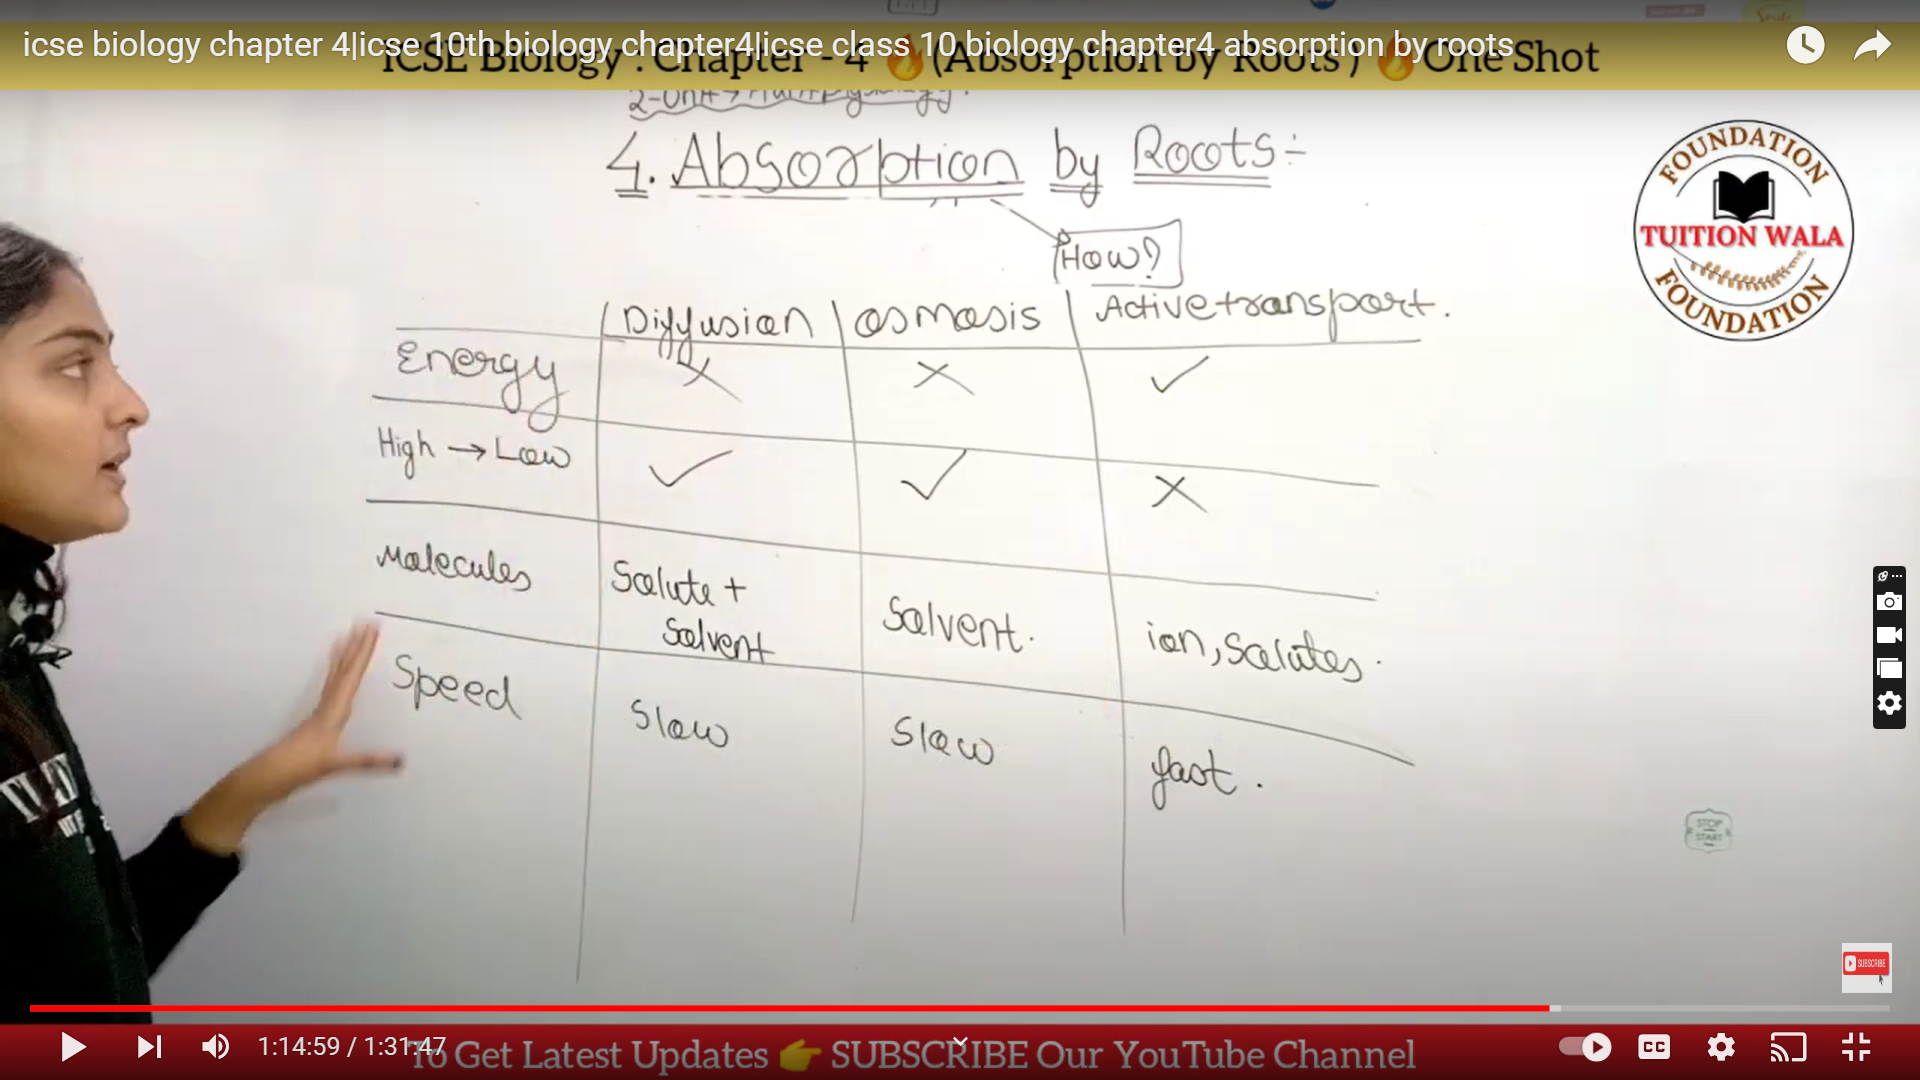 icse biology chapter 4|icse 10th biology chapter4|icse class 10 biology chapter4 absorption by roots
ICSE Biology : Chapter - 4 🔥(Absorption by Roots ) 🔥One Shot
4. Absorption by Roots:-
How?
FOUNDATION
TUITION WALA
FOUNDATION
Diffusion osmosis Active transport.
Energy × × ✓
High → Low ✓ ✓ ×
Molecules Solute + Solvent Solvent. ion, Solutes.
Speed Slow Slow fast.
STOP
START
SUBSCRIBE
1:14:59 / 1:31:47
To Get Latest Updates 👉 SUBSCRIBE Our YouTube Channel
CC